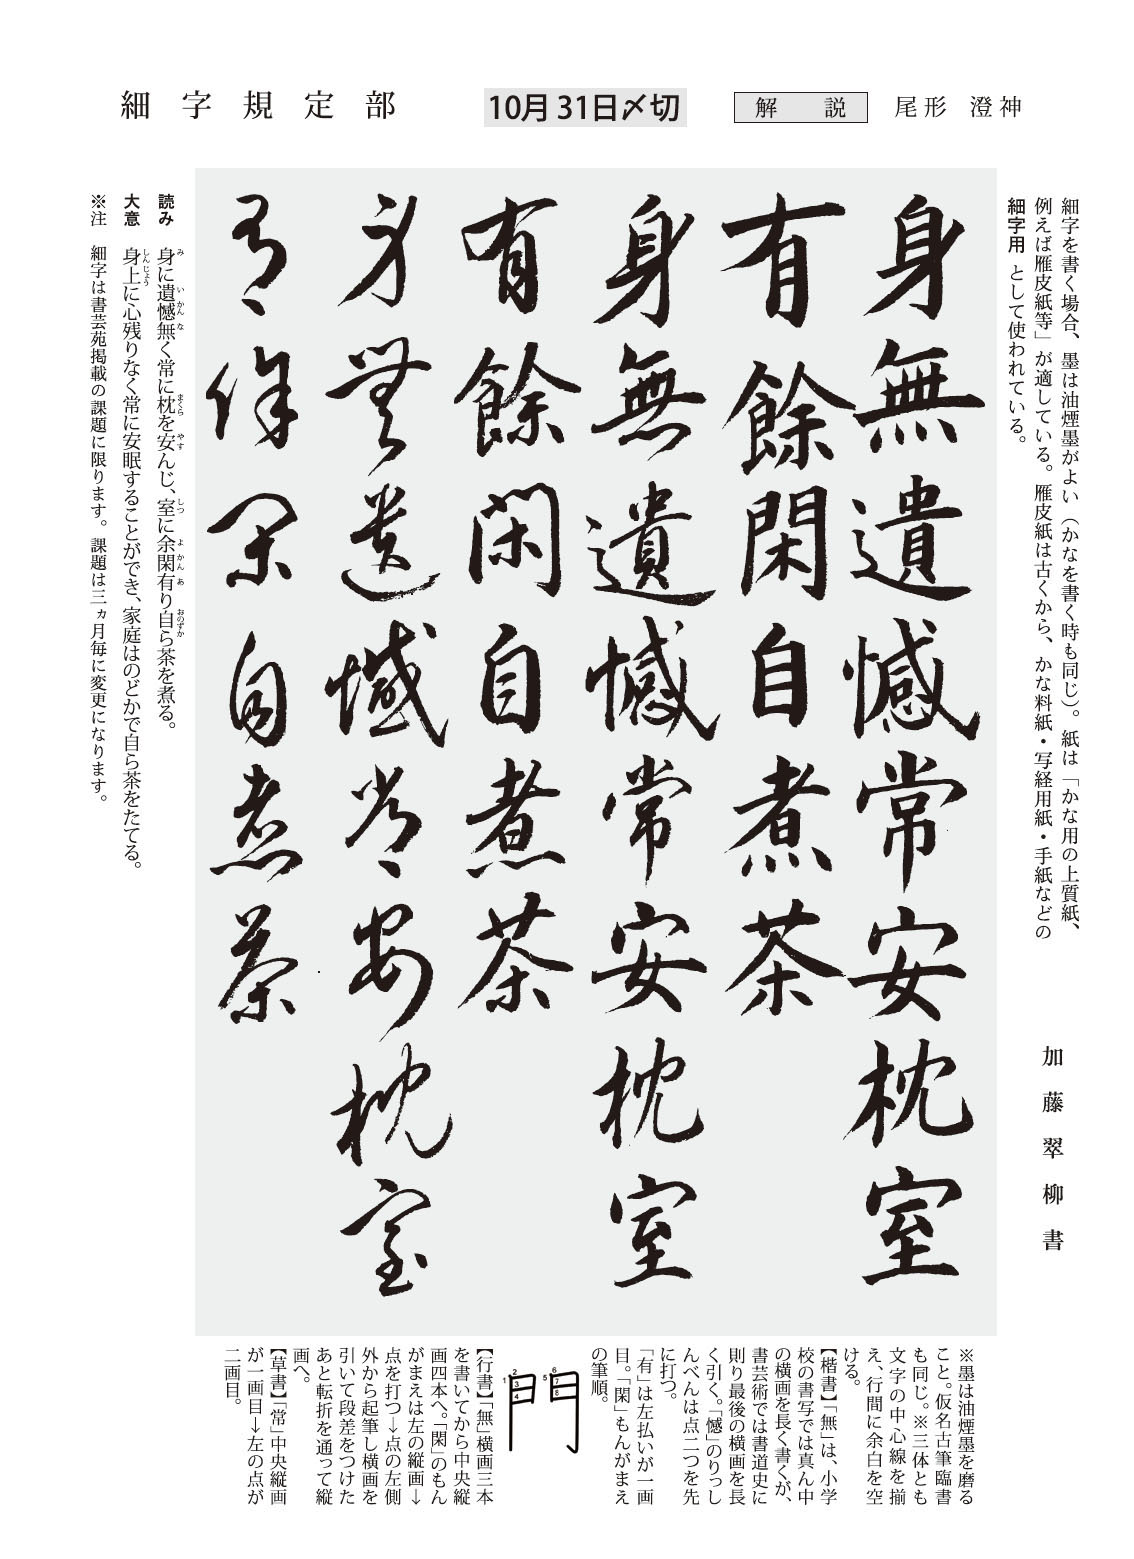 細字規定部
10月31日〆切
解説
尾形 澄神
細字を書く場合、墨は油煙墨がよい（かなを書く時も同じ）。紙は「かな用の上質紙、
例えば雁皮紙等」が適している。雁皮紙は古くから、かな料紙・写経用紙・手紙などの
細字用として使われている。
加藤翠柳書
身無遺憾常安枕室
有餘閑自煮茶
身無遺憾常安枕室
有餘閑自煮茶
身無遺憾常安枕室
有餘閑自煮茶
読み 身に遺憾無く常に枕を安んじ、室に余閑有り自ら茶を煮る。
み いかんな まくら やす しつ よかんあ おのずか
大意 身上に心残りなく常に安眠することができ、家庭はのどかで自ら茶をたてる。
しんじょう
※注 細字は書芸苑掲載の課題に限ります。課題は三ヵ月毎に変更になります。
※墨は油煙墨を磨る
こと。仮名古筆臨書
も同じ。※三体とも
文字の中心線を揃
え、行間に余白を空
ける。
【楷書】「無」は、小学
校の書写では真ん中
の横画を長く書くが、
書芸術では書道史に
則り最後の横画を長
く引く。「憾」のりっし
んべんは点二つを先
に打つ。
「有」は左払いが一画
目。「閑」もんがまえ
の筆順。
門
1 2 3 4 5 6 7 8
【行書】「無」横画三本
を書いてから中央縦
画四本へ。「閑」のもん
がまえは左の縦画→
点を打つ→点の左側
外から起筆し横画を
引いて段差をつけた
あと転折を通って縦
画へ。
【草書】「常」中央縦画
が一画目→左の点が
二画目。